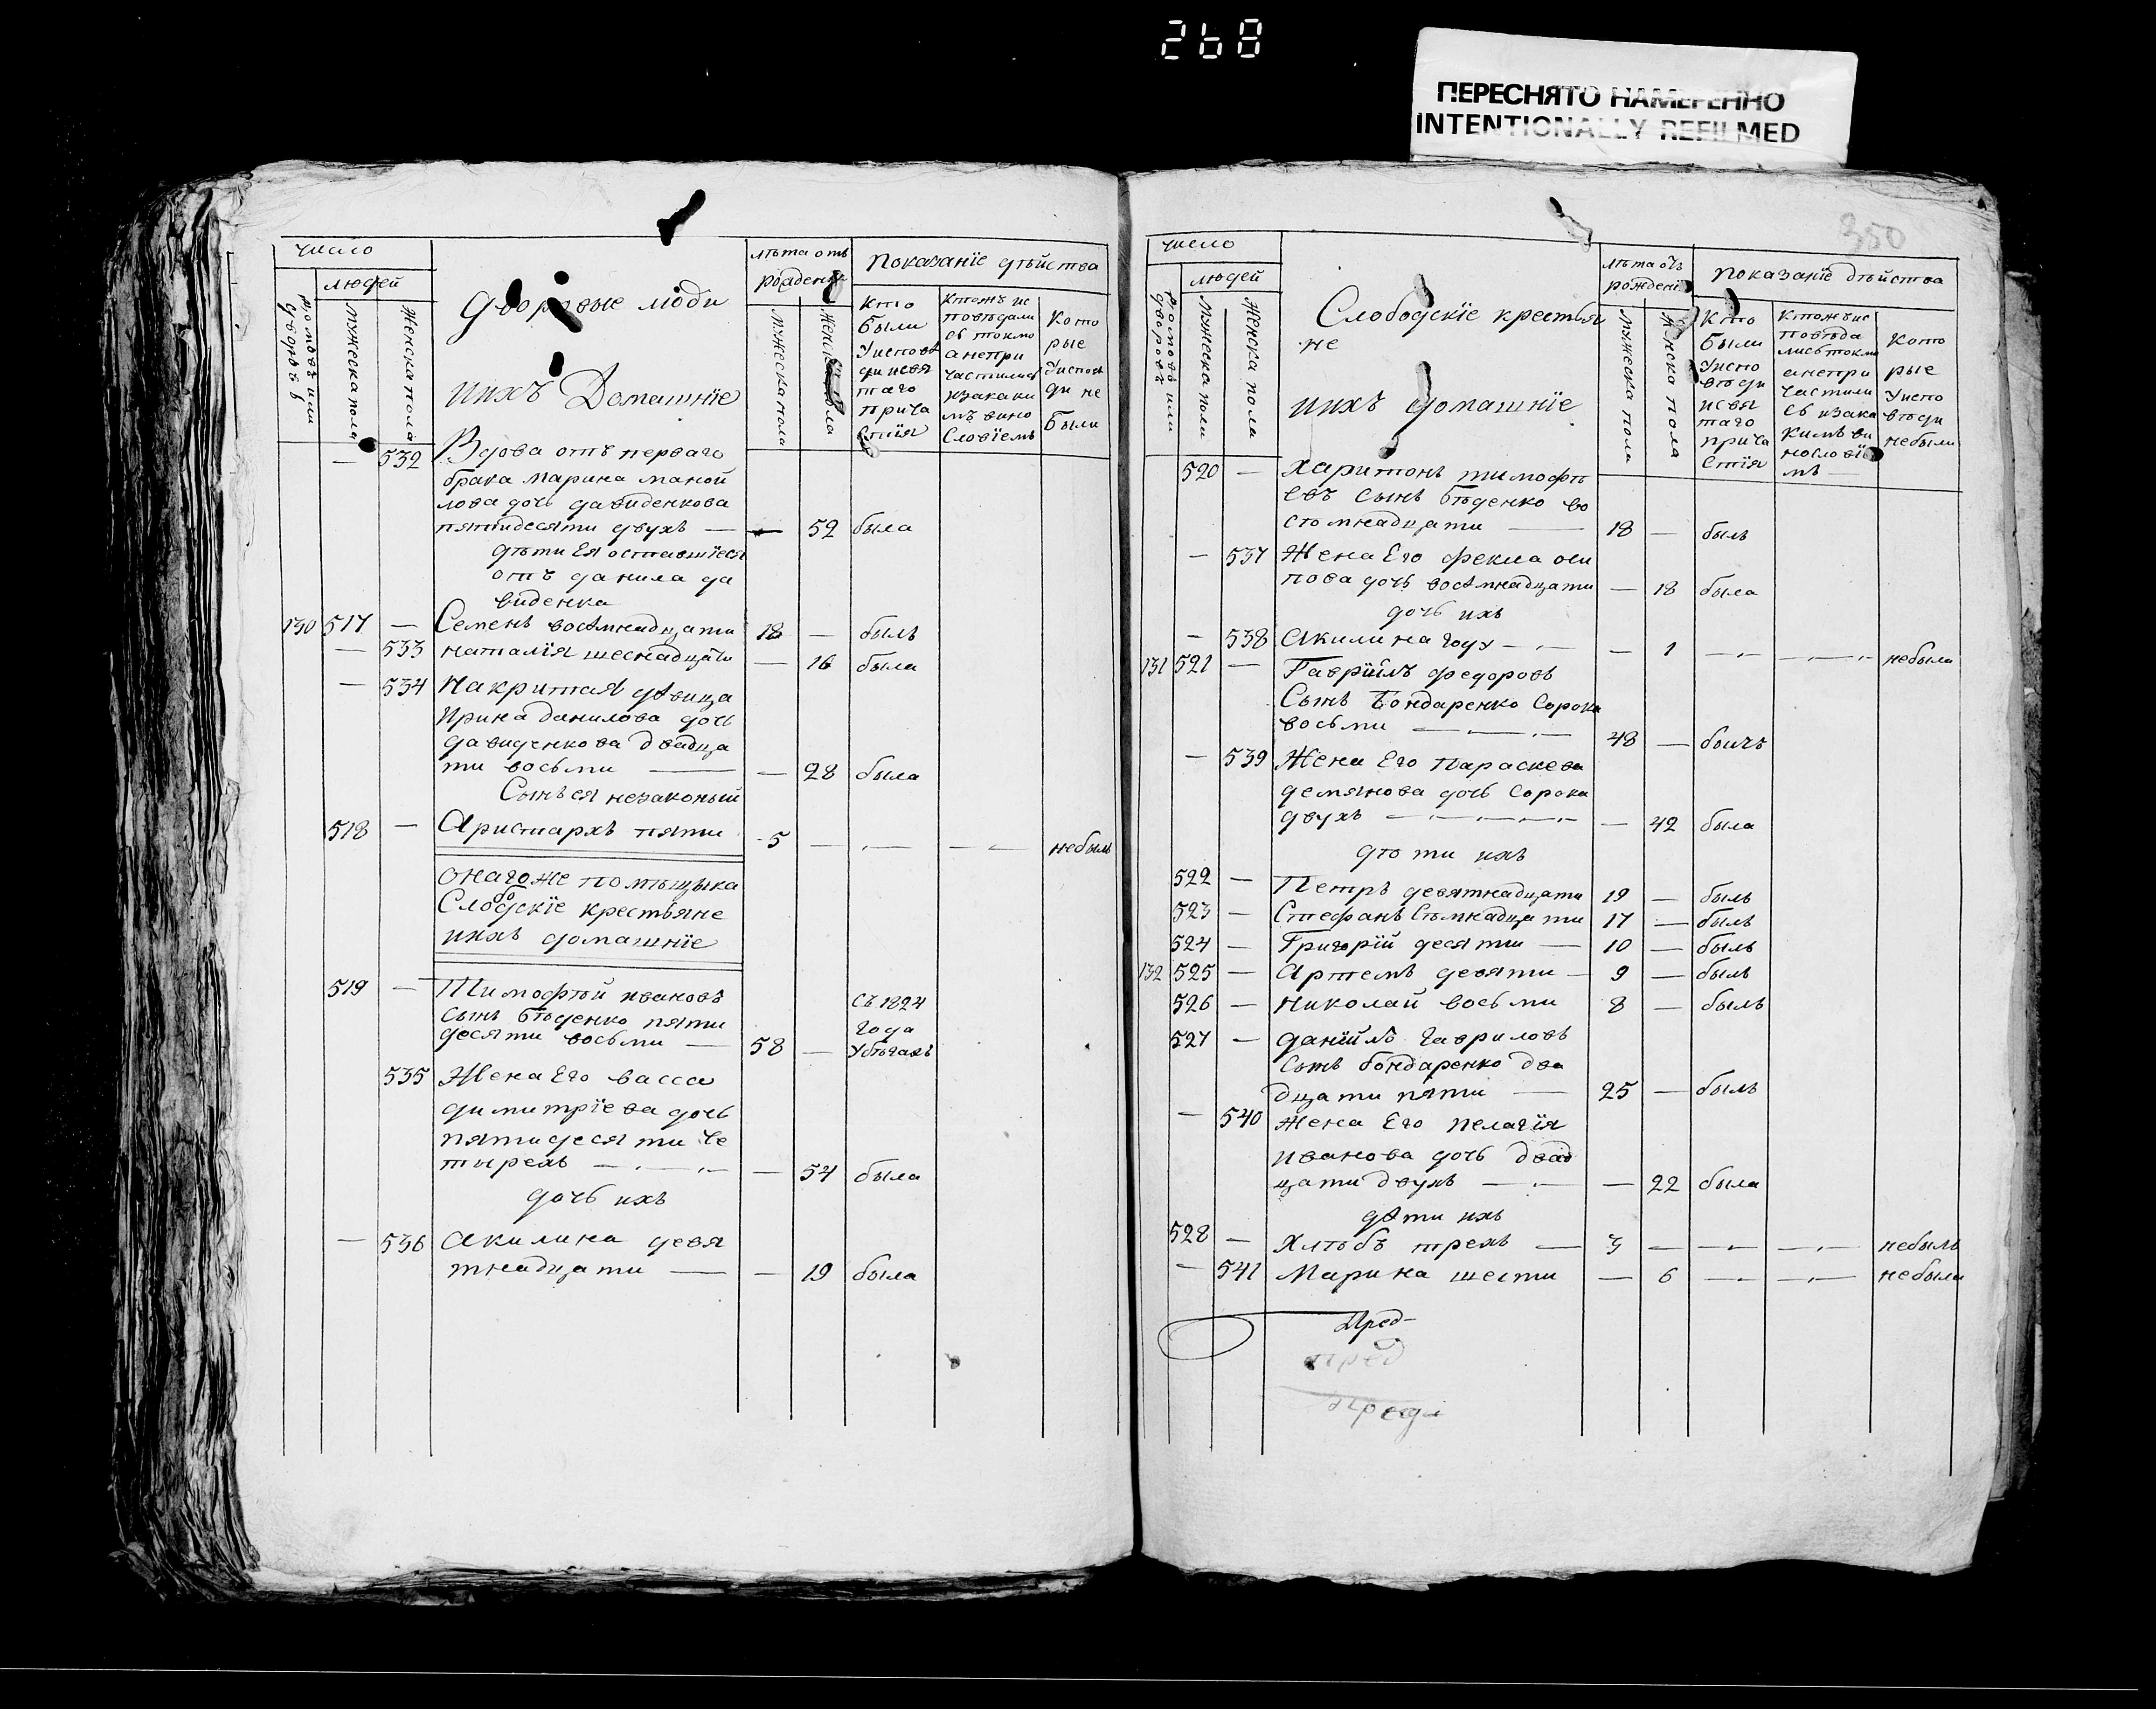 268
ПЕРЕСНЯТО НАМЕРЕННО
INTENTIONALLY REFILMED
число
людей
домовъ или дворовъ
мужеска пола
женска пола
дворовые люди
ихъ Домашніе
лѣта отъ рожденія
мужеска пола
женска пола
показаніе дѣйства
кто
были
у испов
ди исвя
таго
прича
стія
ктожъ ис
повѣдали
сь токмо
а непри
частились
изакаки
мъ вино
словіемъ
кото
рые
у испов
ди не
были
— 532 Вдова отъ перваго
брака Марина маной
лова дочь давиденкова
пятидесяти двухъ — — 52 была
дѣти Ея оставшіеся
отъ данила да
виденка
130 517 — Семенъ восѣмнадцати 18 — былъ
— 533 наталія шеснадцати — 16 была
— 534 Накритая дѣвица
Ирина данилова дочь
давиденкова двадца
ти восьми — — 28 была
Сынъ ея незаконый
518 — Аристархъ пяти 5 — — — — небылъ
онагоже помѣщыка
Слободскіе крестьяне
ихъ домашніе
519 — Тимофѣй ивановъ
сынъ бѣденко пяти
десяти восьми — 58 —
съ 1824
года
убѣгахъ
535 Жена Его васса
димитріева дочь
пятидесяти че
тырехъ — — 54 была
дочь ихъ
— 536 акилина девя
тнадцати — — 19 была
350
число
людей
домовъ или дворовъ
мужеска пола
женска пола
Слободскіе крестья
не
ихъ домашніе
лѣта отъ
рожденія
мужеска пола
женска пола
показаніе дѣйства
кто
были
у испо
вѣди
исвя
таго
прича
стія
ктожъ ис
повѣда
лисьтокмо
а непри
частили
сь изака
кимъ ви
нословіе
мъ —
кото
рые
у испо
вѣди
небыли
520 — харитонъ тимофѣ
евъ сынъ бѣденко во
стомнадцати — 18 — былъ
— 537 Жена Его фекла оси
пова дочь восѣмнадцати — 18 была
дочь ихъ
— 538 акилина году — — 1 — — небыла
131 521 — Гавріилъ федоровъ
Сынъ Бондаренко Сорока
восьми — 48 — былъ
— 539 Жена Его параскева
демянова дочь Сорока
двухъ — — 42 была
дѣти ихъ
522 — Петръ девятнадцати 19 — былъ
523 — Стефанъ Сѣмнадцати 17 — былъ
524 — Григорій десяти — 10 — былъ
132 525 — Артемъ девяти — 9 — былъ
526 — николай восьми 8 — былъ
527 — даніилъ гавриловъ
сынъ бондаренко два
дцати пяти — 25 — былъ
— 540 жена Его пелагія
иванова дочь двад
цати двухъ — — 22 была
дѣти ихъ
528 — Хлѣбъ трехъ — 3 — — — небылъ
— 541 Марина шести — 6 — — небыла
Пред-
пред
пред